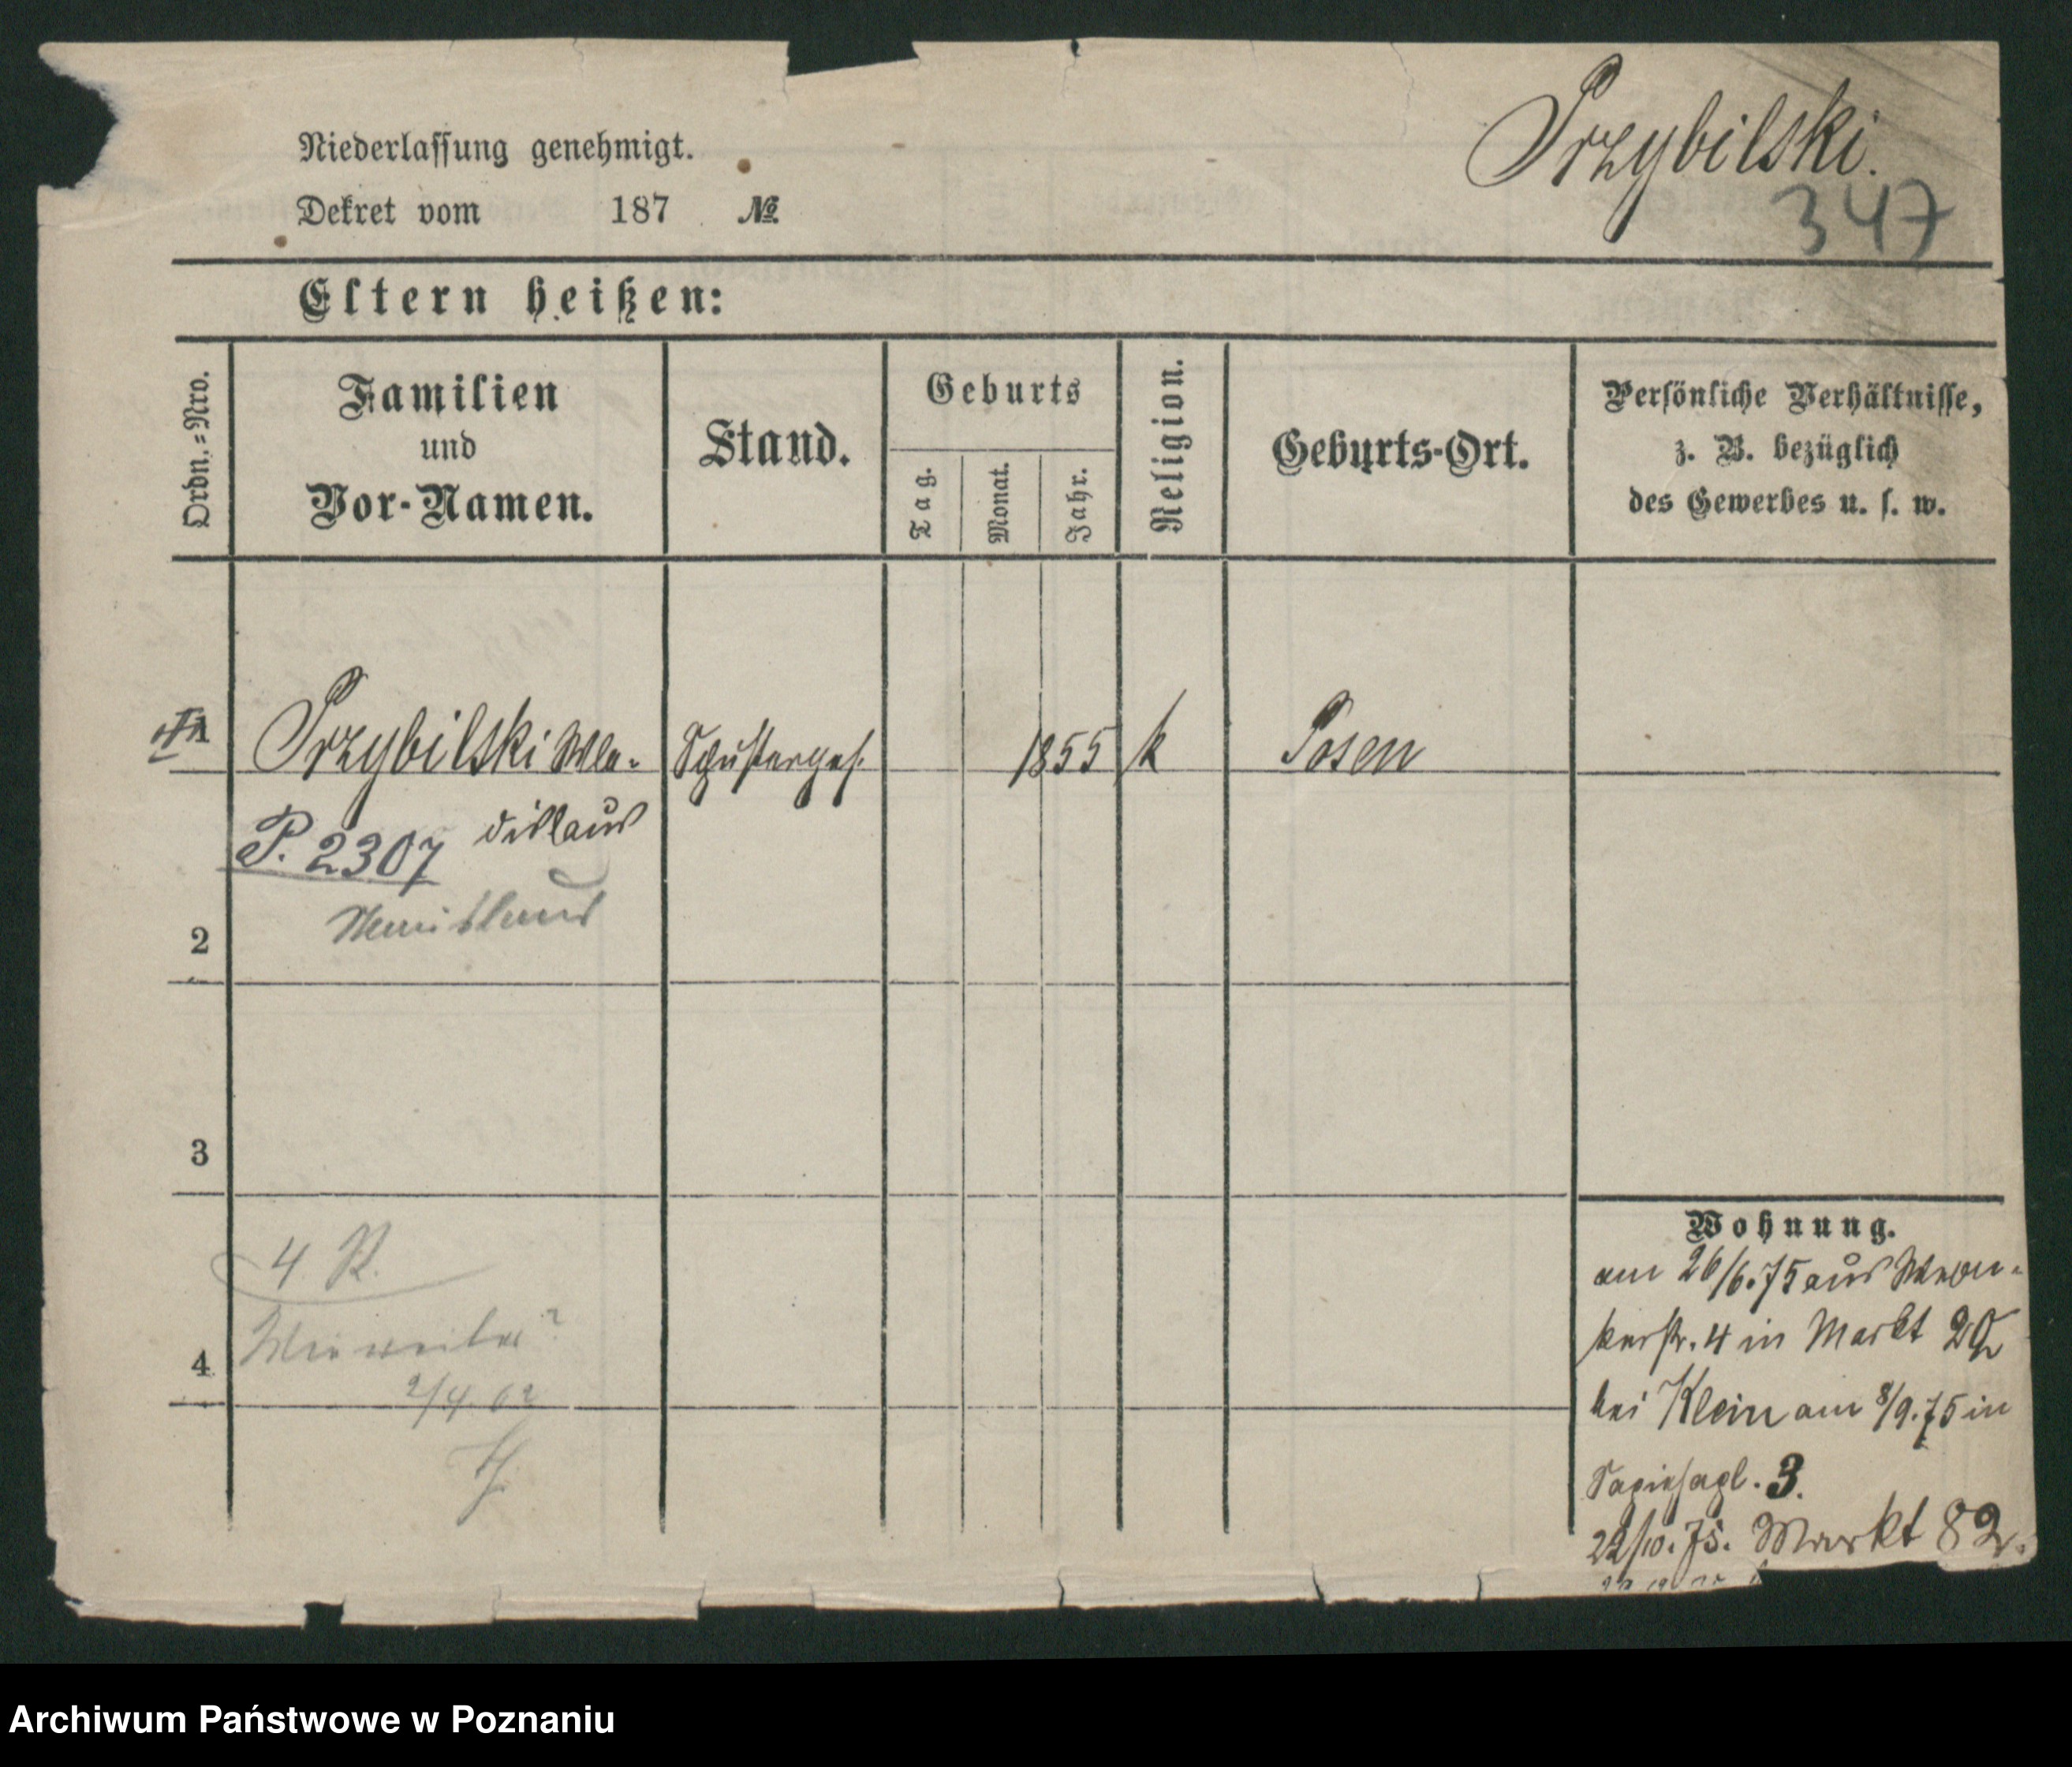 Przybilski.
347
Niederlassung genehmigt.
Dekret vom 187 №
Eltern heißen:
Ordn.=Nro.
Familien
und
Vor-Namen.
Stand.
Geburts
Tag.
Monat.
Jahr.
Religion.
Geburts-Ort.
Persönliche Verhältnisse,
z. B. bezüglich
des Gewerbes u. s. w.
1 Przybilski Wla- Schusterges. 1855 k Posen
dislaus
P. 2307
2
3
4 R.
4
2/4. 02
Wohnung.
am 26/6.75 aus Wron-
kerstr. 4 in Markt 92
bei Klein am 8/9.75 in
Sapiehapl. 3.
22/10.75. Markt 82.
Archiwum Państwowe w Poznaniu